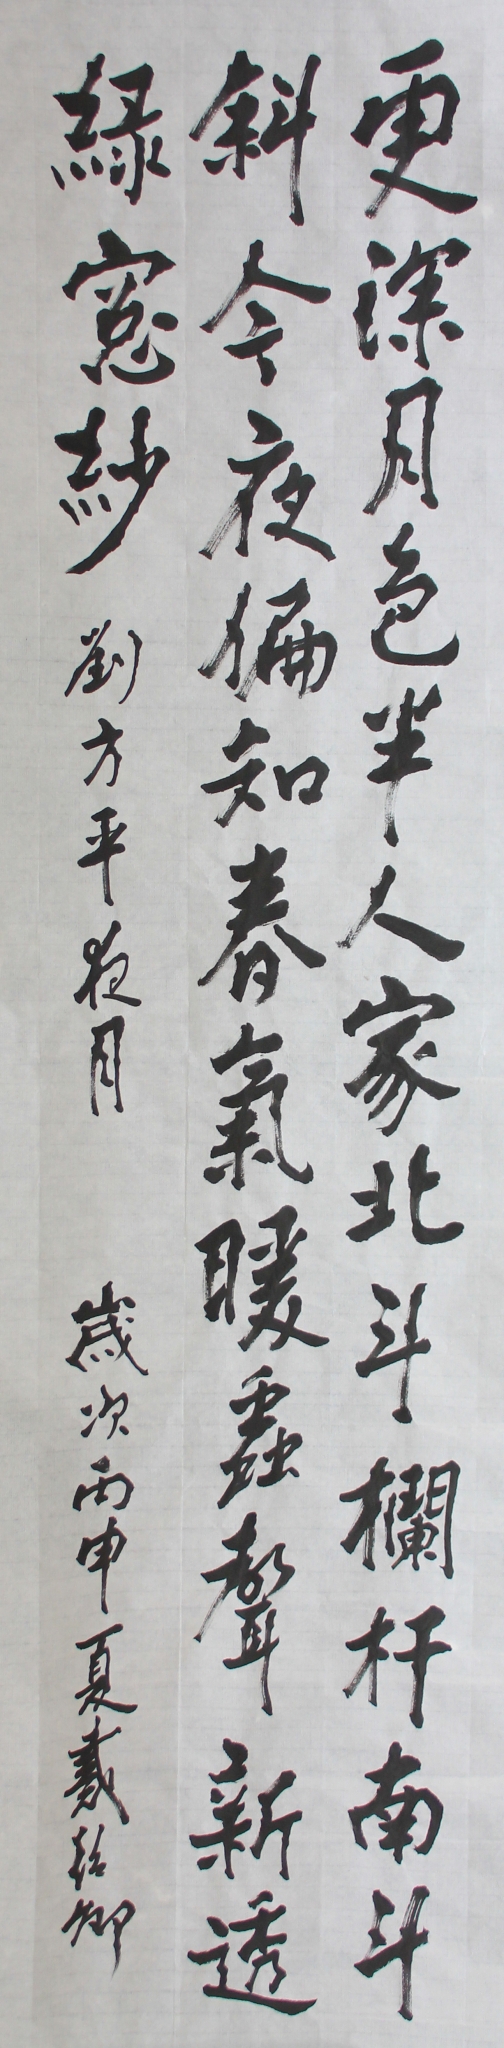 更深月色半人家北斗欄杆南斗
斜今夜偏知春氣暖蟲聲新透
綠窗紗 劉方平夜月 歲次丙申夏戴